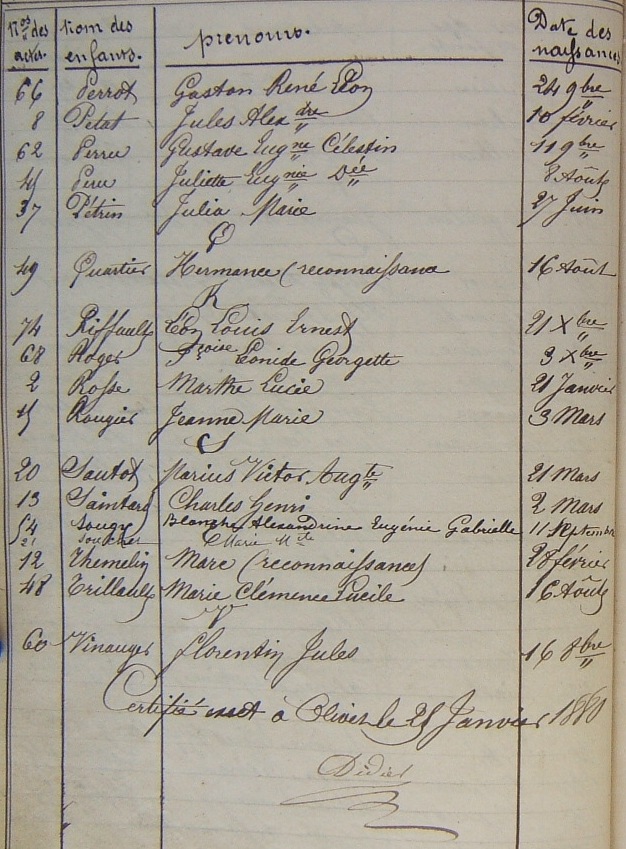 Nos des actes. Nom des enfants. prénoms. Date des naissances
66 Perrot Gaston René Léon 24 9bre
8 Petat Jules Alexdre 10 février
62 Perru Gustave Eugne Célestin 11 9bre
Peru Juliette Eugnie Dée 8 Août
37 Pétrin Julia Marie 27 Juin
Q
49 Quartier Hermance (reconnaissance 16 Août
R
74 Riffault Léon Louis Ernest 21 Xbre
68 Roger Fçoise Léonide Georgette 3 Xbre
2 Rosse Marthe Lucie 21 Janvier
15 Rougier Jeanne Marie 3 Mars
S
20 Sautot Marius Victor Augte 21 Mars
13 Saintard Charles henri 2 Mars
54 Sougy Blanche Alexandrine Eugénie Gabrielle 11 Septembre
21 Souchet Marie Mte
12 Themelin Marc (reconnaissance) 28 février
48 Trillault Marie Clémence Lucile 16 Août
V
60 Vinauger florentin Jules 16 8bre
Certifié exact à Olivet le 25 Janvier 1880
Didier